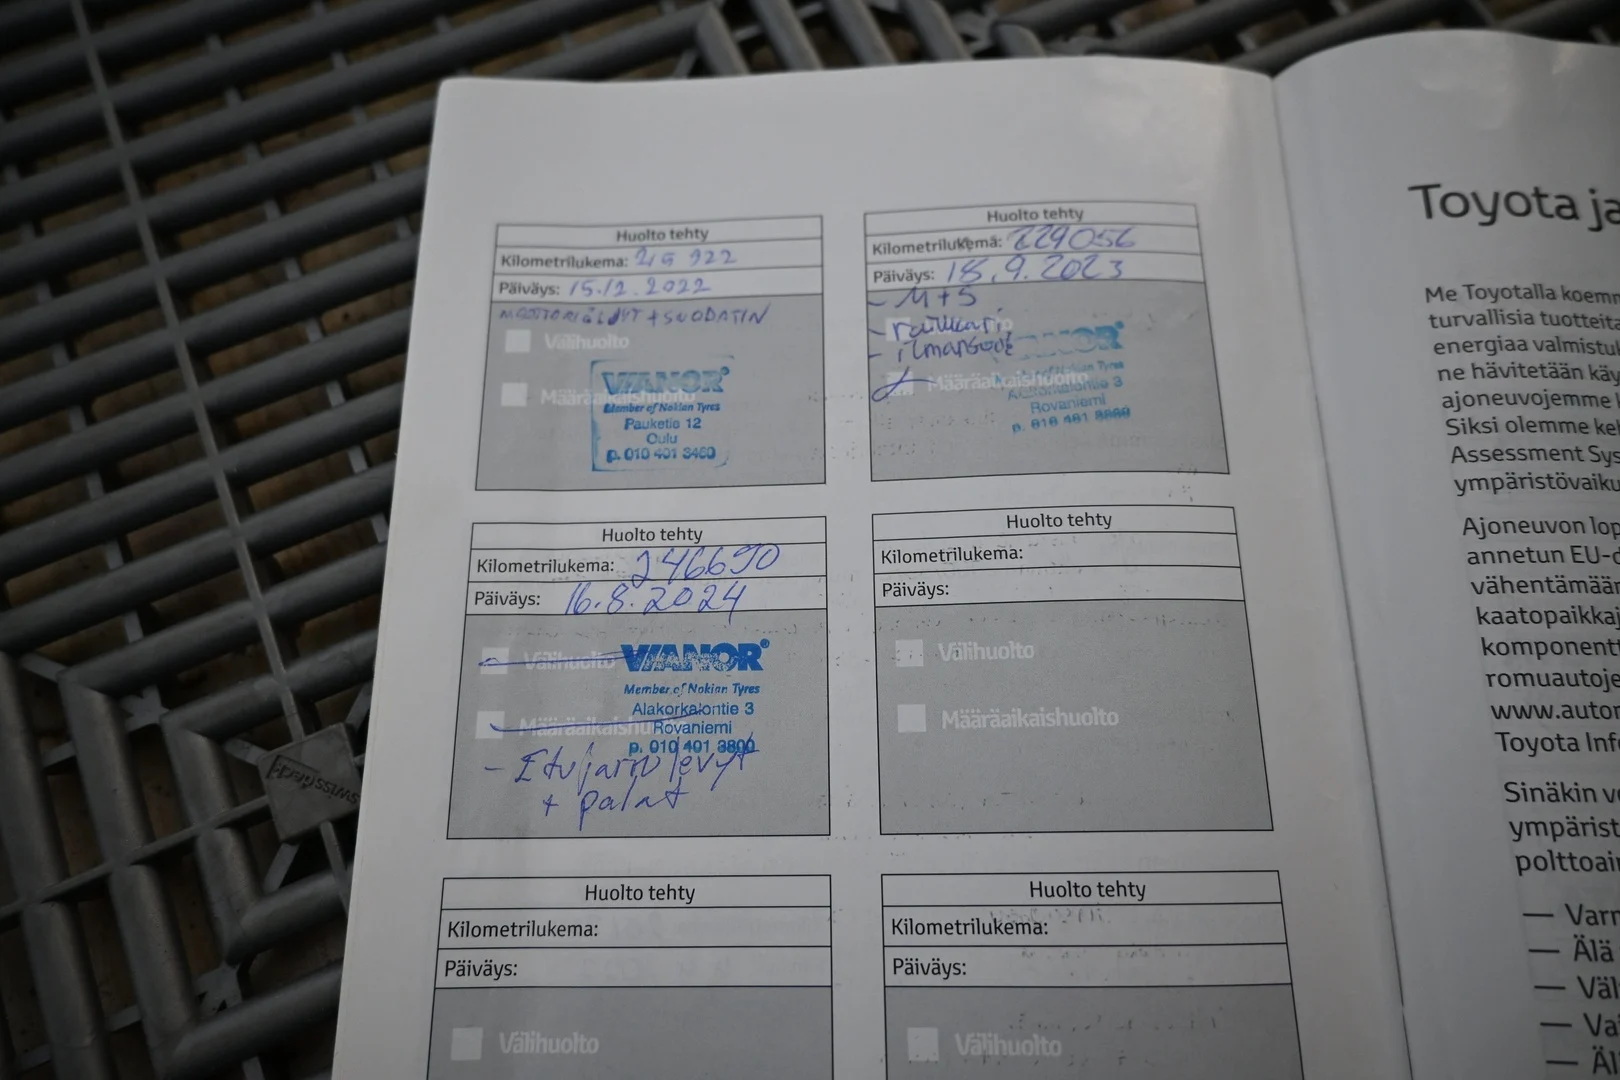 Huolto tehty
Kilometrilukema: 215 922
Päiväys: 15.12.2022
MOOTTORIÖLJYT + SUODATIN
Välihuolto
Määräaikaishuolto
VIANOR®
Member of Nokian Tyres
Pauketie 12
Oulu
p. 010 401 3460
Huolto tehty
Kilometrilukema: 229056
Päiväys: 18.9.2023
- M+S
- raikkari
- ilmansuod
VIANOR®
Määräaikaishuolto
of Nokian Tyres
Alakorkalontie 3
Rovaniemi
p. 010 401 3800
Huolto tehty
Kilometrilukema: 246690
Päiväys: 16.8.2024
Välihuolto
VIANOR®
Member of Nokian Tyres
Alakorkalontie 3
Määräaikaishuolto
Rovaniemi
p. 010 401 3800
- Etujarrulevyt
+ palat
Huolto tehty
Kilometrilukema:
Päiväys:
Välihuolto
Määräaikaishuolto
Huolto tehty
Kilometrilukema:
Päiväys:
Välihuolto
Huolto tehty
Kilometrilukema:
Päiväys:
Välihuolto
Toyota ja
Me Toyotalla
turvallisia tuotteita
energiaa
ne hävitetään
ajoneuvojemme
Siksi olemme
Assessment
Ajoneuvon
annetun
komponentt
www.
Toyota
Sinäkin
—
— Älä
—
—
—
swisstrax